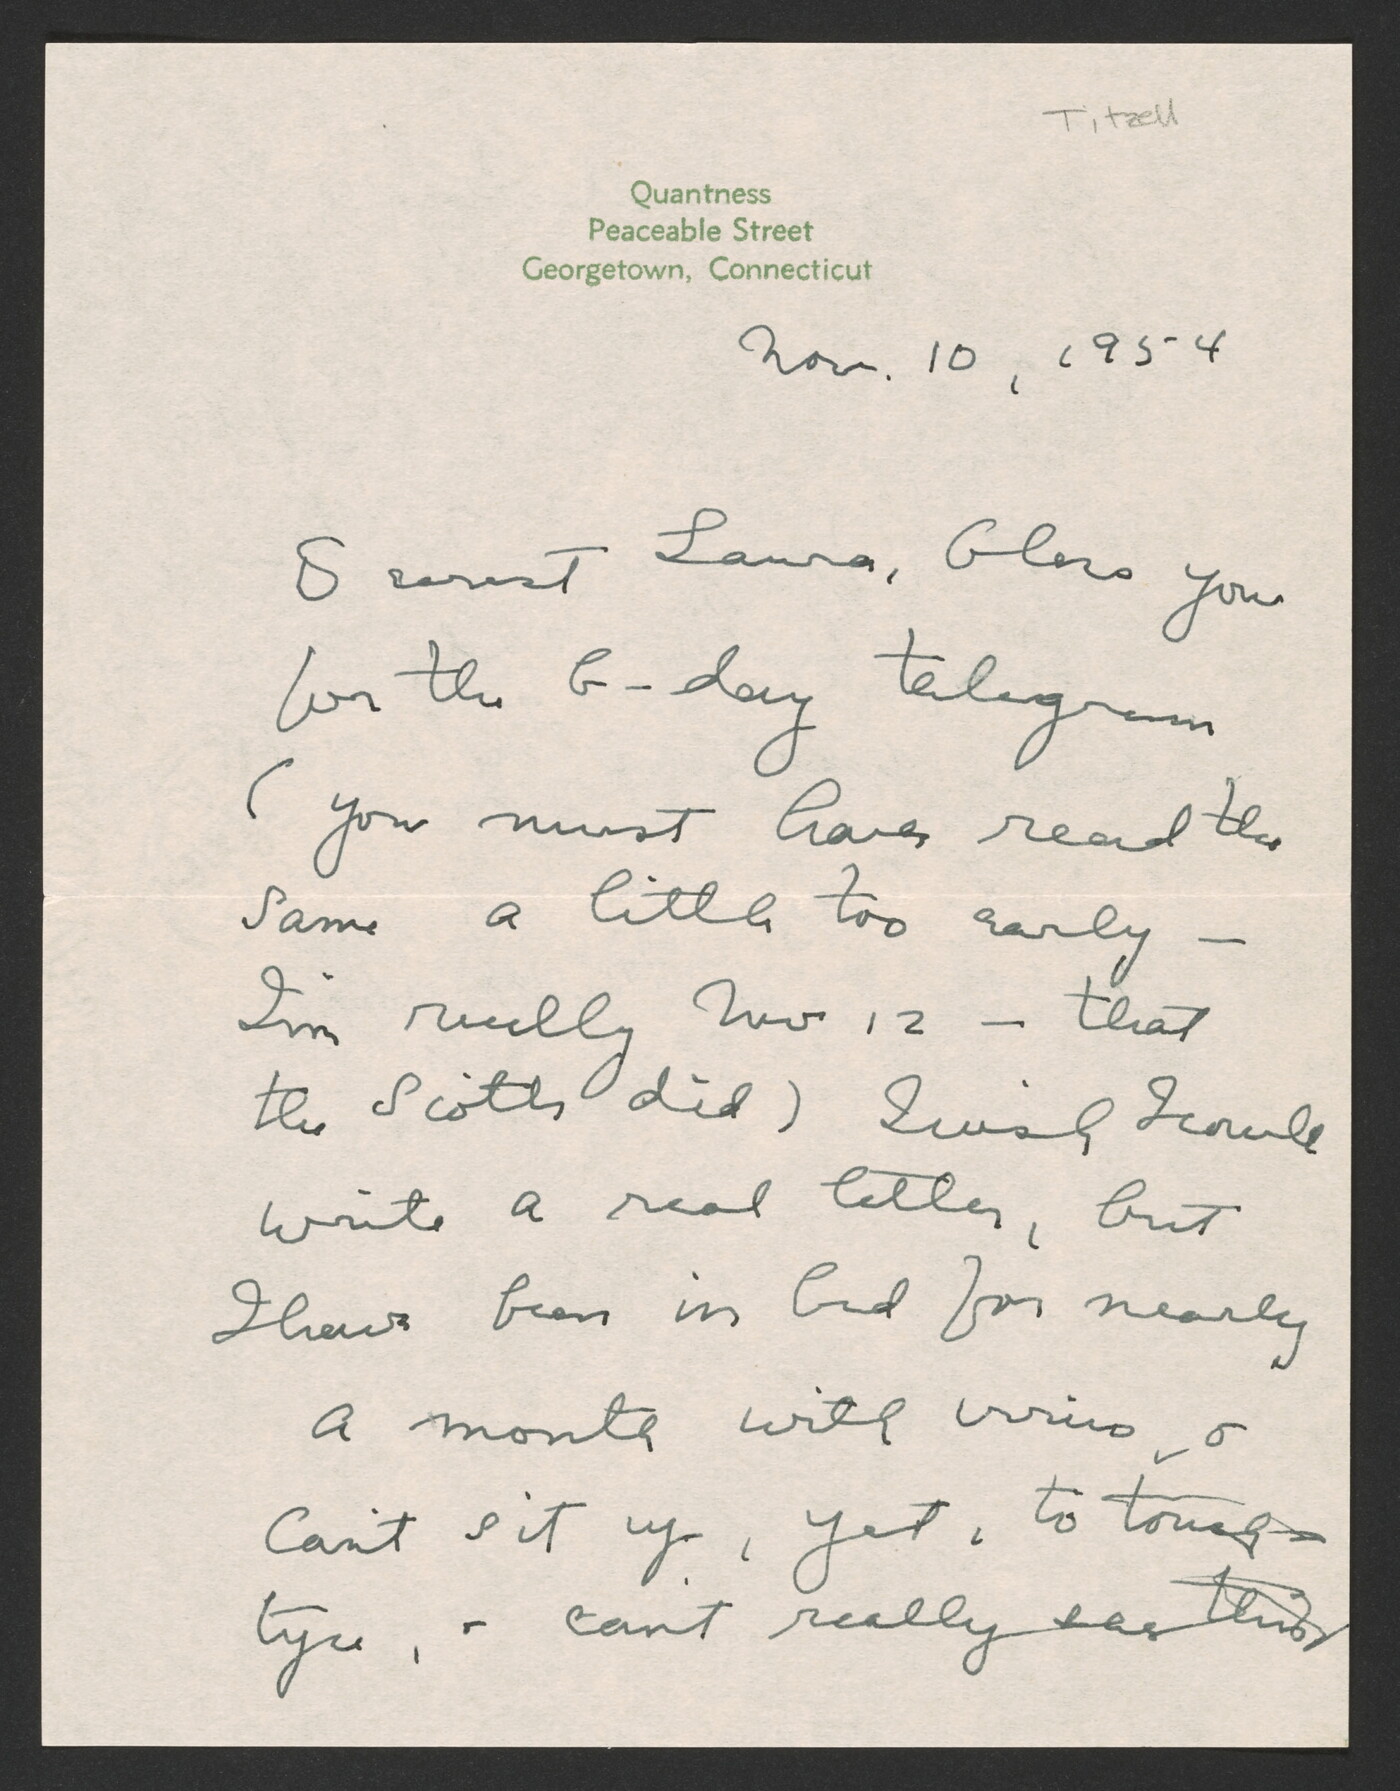 Titzell
Quantness
Peaceable Street
Georgetown, Connecticut
Nov. 10, 1954
Dearest Laura, bless you
for the b-day telegram
( you must have read the
same a little too early —
I'm really Nov 12 — that
the Scotts did ) I wish I could
write a real letter, but
I have been in bed for nearly
a month with virus, &
can't sit up, yet, to touch
type, & can't really see this